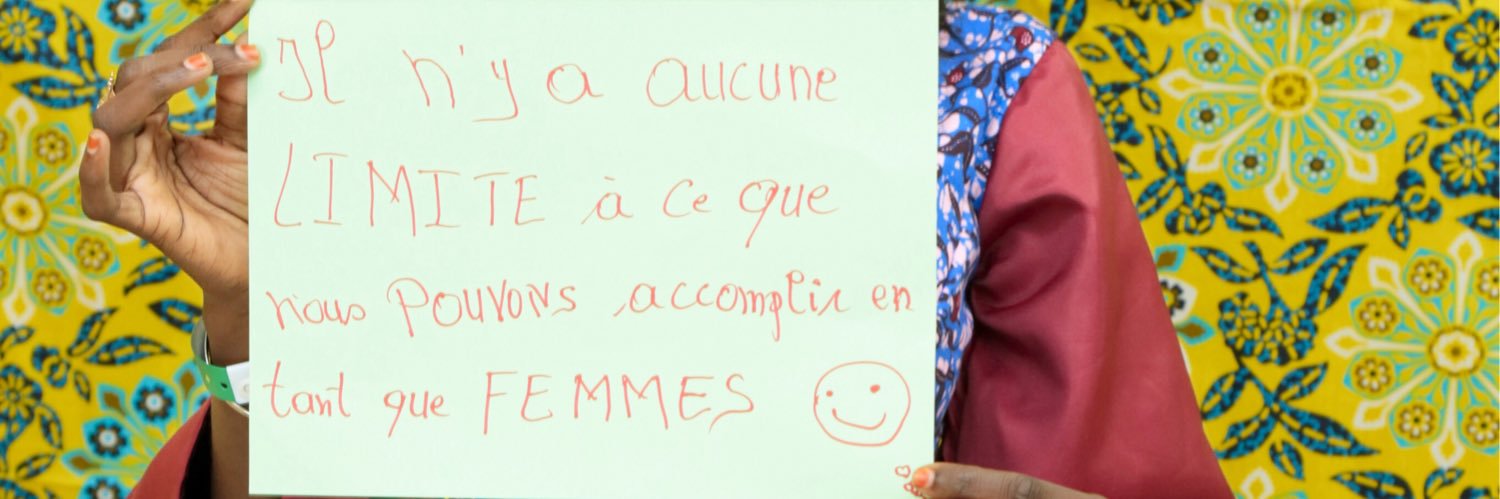 Il n'y a aucune
LIMITE à ce que
nous POUVONS accomplir en
tant que FEMMES